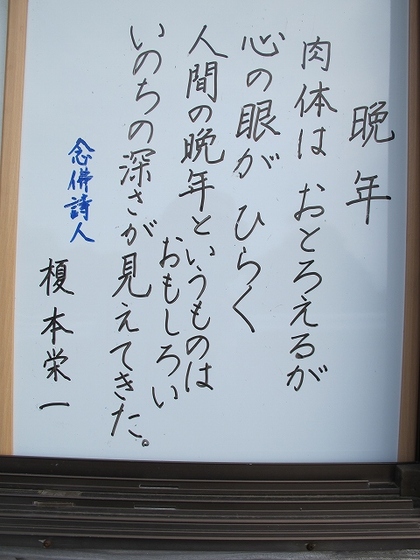 晩年
肉体は おとろえるが
心の眼が ひらく
人間の晩年というものは
おもしろい
いのちの深さが見えてきた。
念佛詩人
榎本栄一